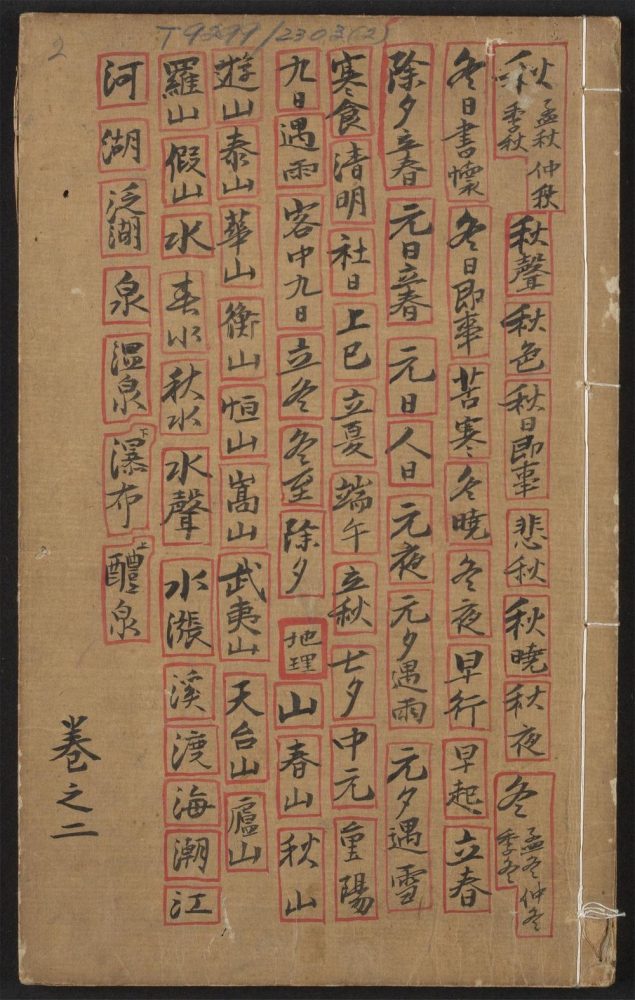 2
T9299/2303(2)
秋 孟秋 仲秋 季秋 秋聲 秋色 秋日即事 悲秋 秋曉 秋夜 冬 孟冬 仲冬 季冬
冬日書懷 冬日即事 苦寒 冬曉 冬夜 早行 早起 立春
除夕立春 元日立春 元日 人日 元夜 元夕遇雨 元夕遇雪
寒食 清明 社日 上巳 立夏 端午 立秋 七夕 中元 重陽
九日遇雨 客中九日 立冬 冬至 除夕 地理 山 春山 秋山
遊山 泰山 華山 衡山 恒山 嵩山 武夷山 天台山 廬山
羅山 假山 水 春水 秋水 水聲 水漲 溪 渡 海 潮 江
河 湖 泛湖 泉 溫泉 瀑布下 醴泉上
卷之二